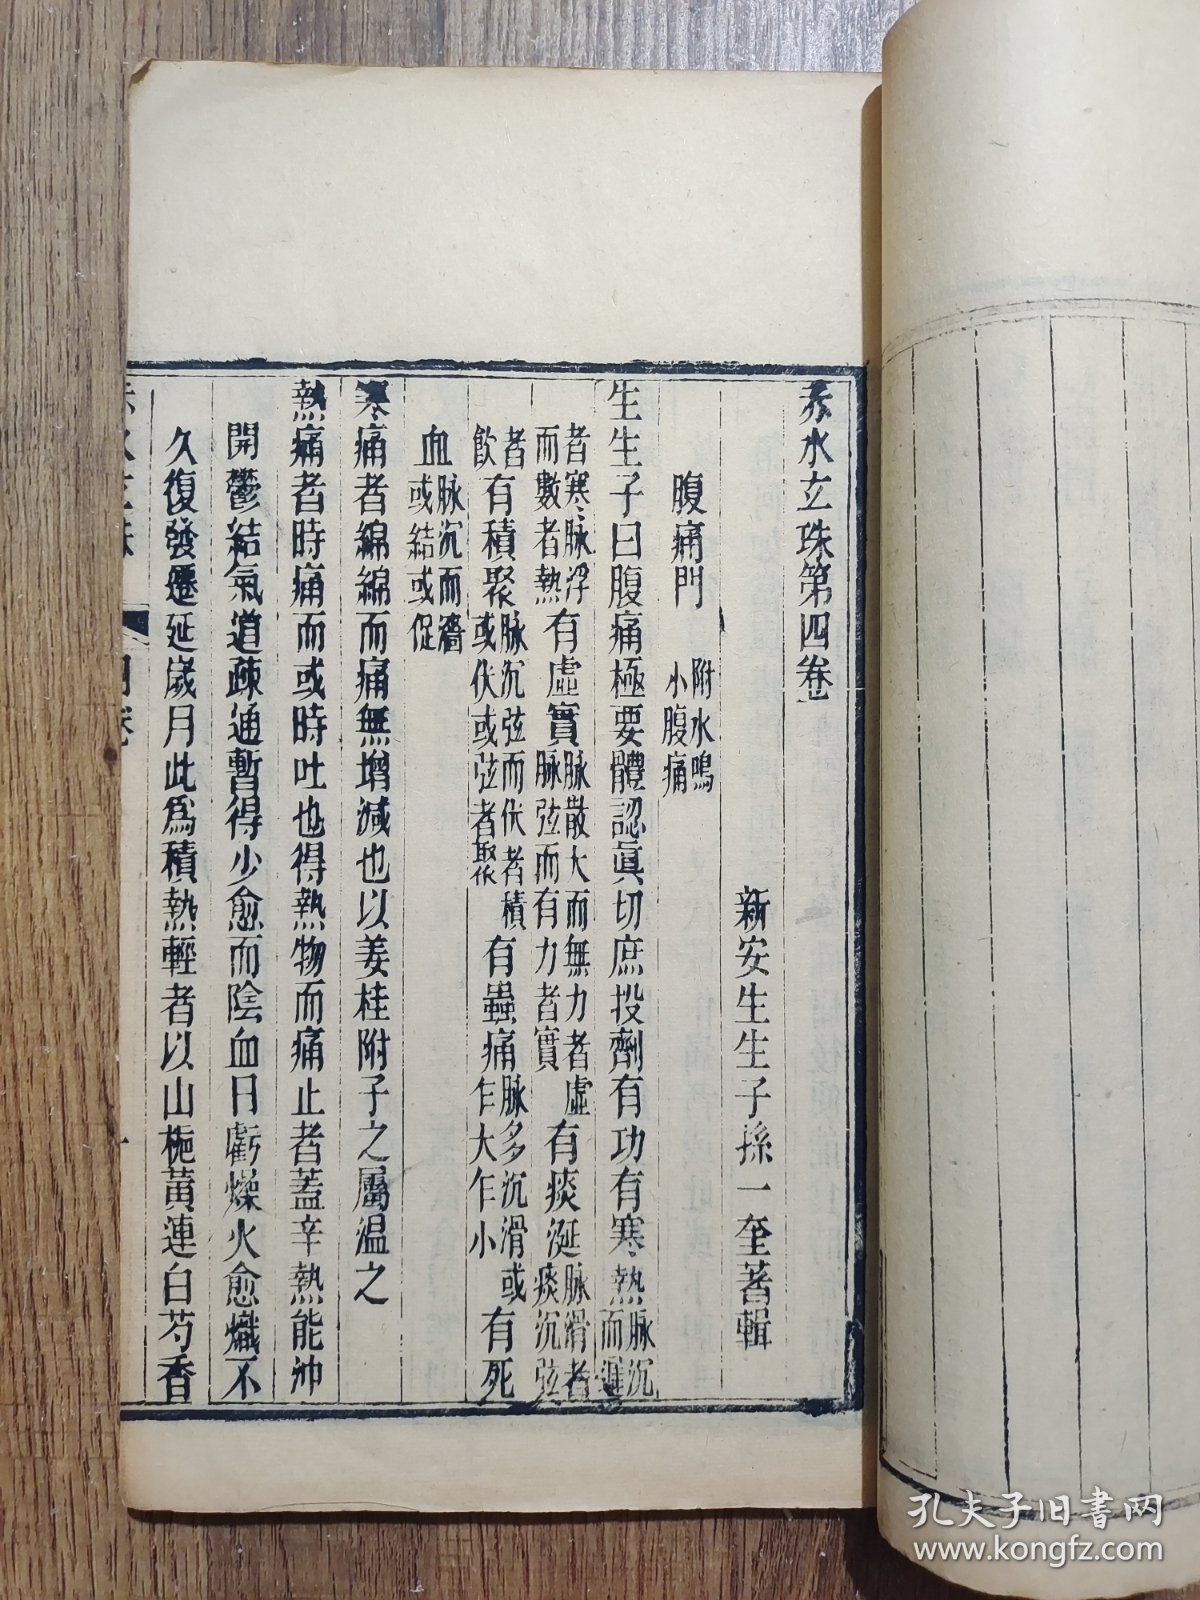 赤水玄珠第四卷
新安生生子孫一奎著輯
腹痛門 附水鳴小腹痛
生生子曰腹痛極要體認眞切庶投劑有功有寒熱脉沉而遲
者寒脉浮而數者熱有虛實脉散大而無力者虛脉弦而有力者實有痰涎脉滑者痰沉弦
者飲有積聚脉沉弦而伏者積或伏或弦者聚有蟲痛脉多沉滑或乍大乍小有死
血脉沉而濇或結或促
寒痛者綿綿而痛無增減也以姜桂附子之屬温之
熱痛者時痛而或時吐也得熱物而痛止者蓋辛熱能冲
開鬱結氣道疎通暫得少愈而陰血日虧燥火愈熾不
久復發遷延歲月此爲積熱輕者以山梔黃連白芍香
赤水玄珠 四卷 一
孔夫子旧书网
www.kongfz.com